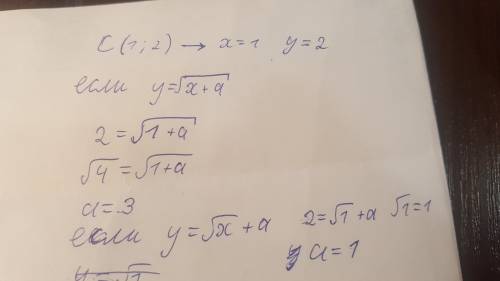 C(1;2) → x=1 y=2
если y=√x+a
2=√1+a
√4=√1+a
a=3
если y=√x+a 2=√1+a √1=1
y a=1